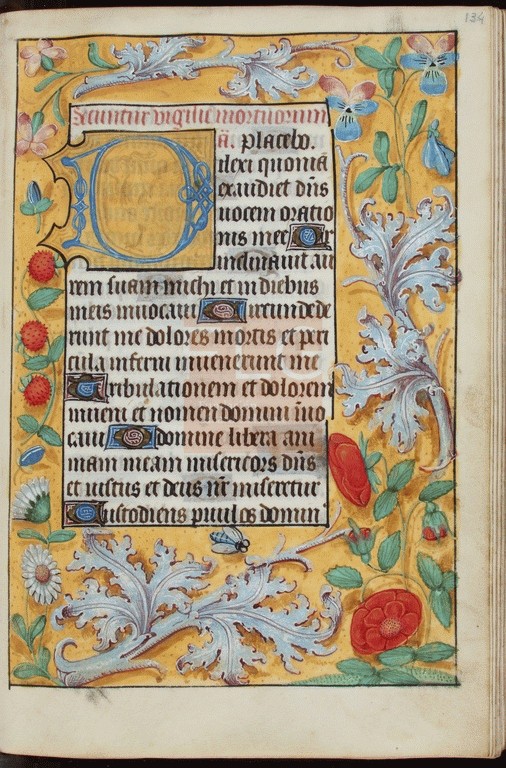 134
Secuntur vigilie mortuorum
a. placebo.
Dilexi quoniã
exaudiet dñs
vocem oratio
nis mee Qr
inclinauit au
rem suam michi et in diebus
meis inuocaui Circundede
runt me dolores mortis et peri
cula inferni inuenerunt me
Tribulationem et dolorem
inueni et nomen domini ĩuo
caui O domine libera ani
mam meam misericors dñs
et iustus et deus nr̃ miseretur
Custodiens pruulos domin'